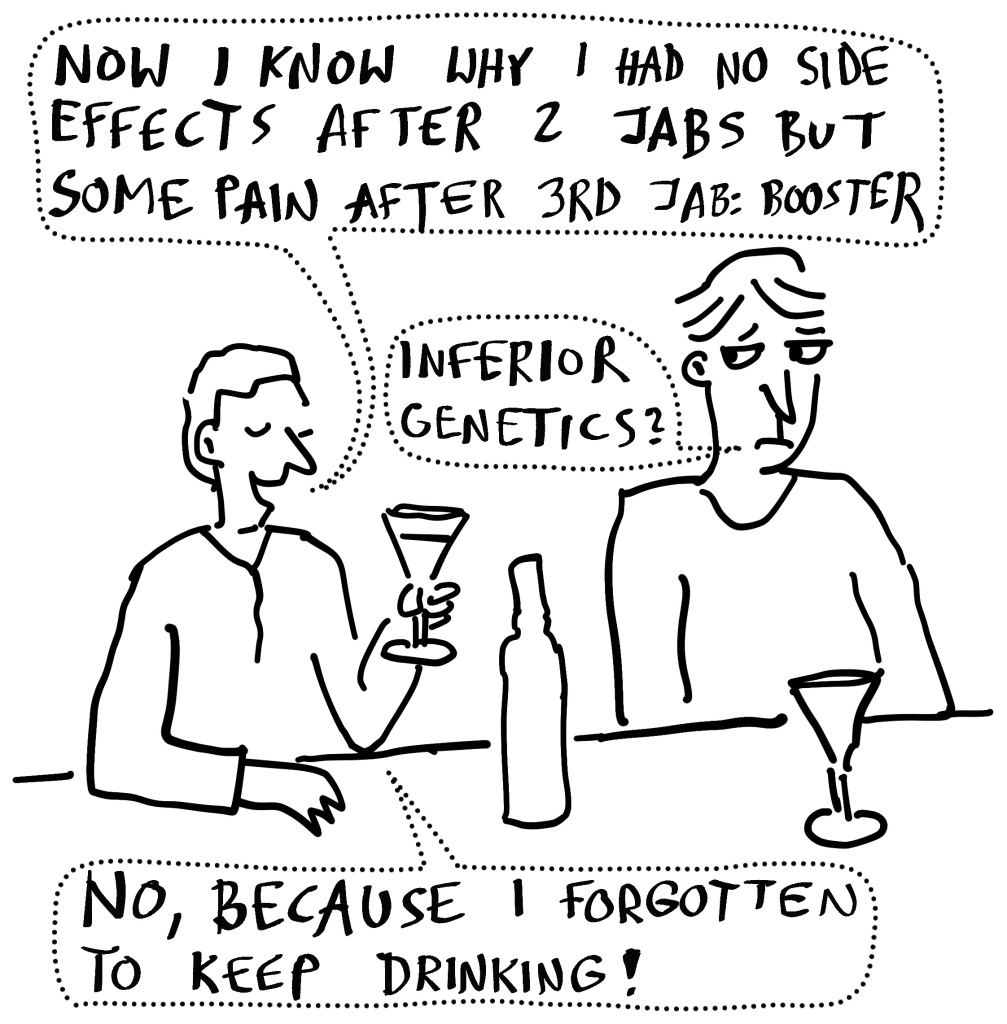 NOW I KNOW WHY I HAD NO SIDE
EFFECTS AFTER 2 JABS BUT
SOME PAIN AFTER 3RD JAB: BOOSTER
INFERIOR
GENETICS?
NO, BECAUSE I FORGOTTEN
TO KEEP DRINKING!